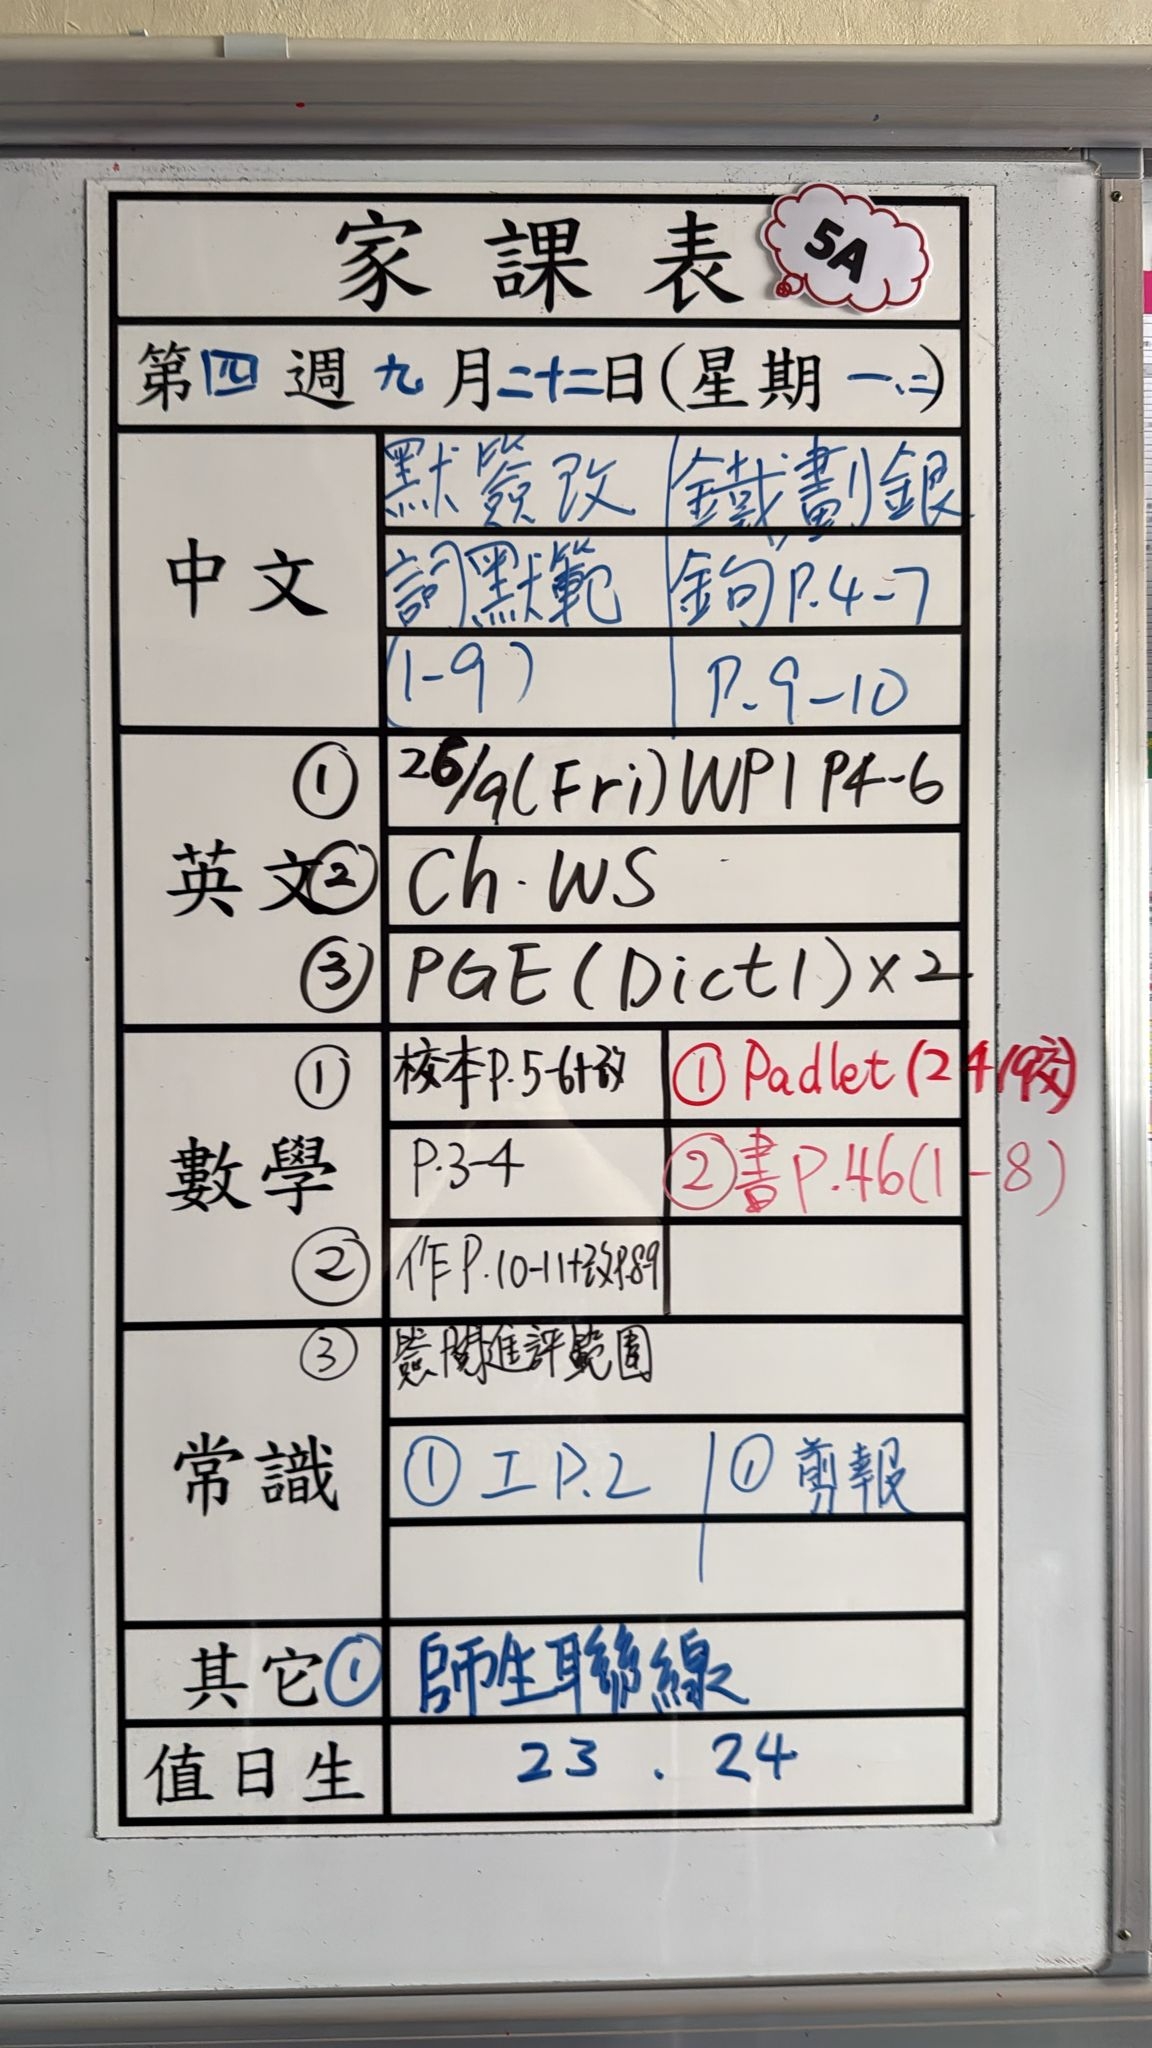 家課表 5A
第四週九月二十二日(星期一、二)
中文
默簽改 鐵劃銀
詞默範 鉤P.4-7
(1-9) P.9-10
英文
① 26/9(Fri)WP1 P4-6
② Ch. WS
③ PGE(Dict1)×2
數學
① 校本P.5-6+改 ① Padlet(24/9交)
P.3-4 ②書P.46(1-8)
② 作P.10-11+改P.8-9
③ 簽閱進評範圍
常識
①工P.2 ①剪報
其它① 師生聯線
值日生 23.24